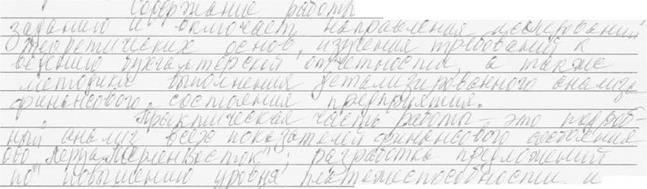 Содержание работы
заданию и включает направления исследований
теоретических основ, изучения требований к
ведению бухгалтерской отчетности, а также
методики выполнения детализированного анализа
финансового состояния предприятия.
Практическая часть работы - это подроб-
ный анализ всех показателей финансового состояния
ООО "; разработка предложений
по повышению уровня платежеспособности и